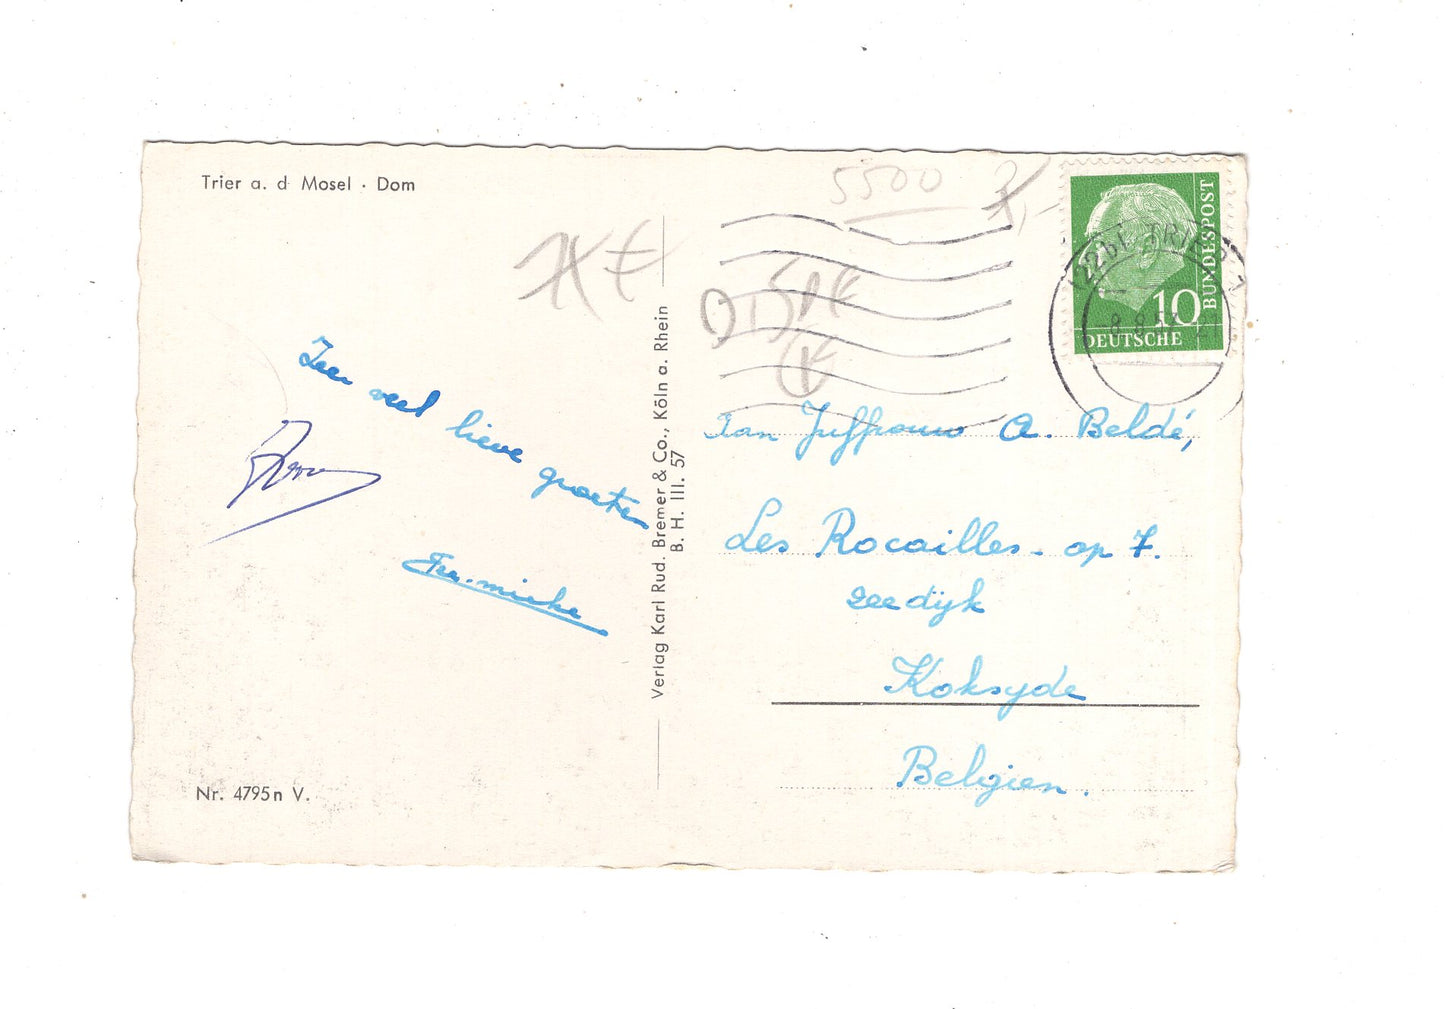 Trier a. d. Mosel · Dom
Zeer veel lieve groeten
Nr. 4795n V.
Verlag Karl Rud. Bremer & Co., Köln a. Rhein
B. H. III. 57
5500
BUNDESPOST
10
DEUTSCHE
(22b) TRIER
-8.8.57-21
Juffrouw A. Beldé,
Les Rocailles - op 7.
zeedijk
Koksyde
Belgien.